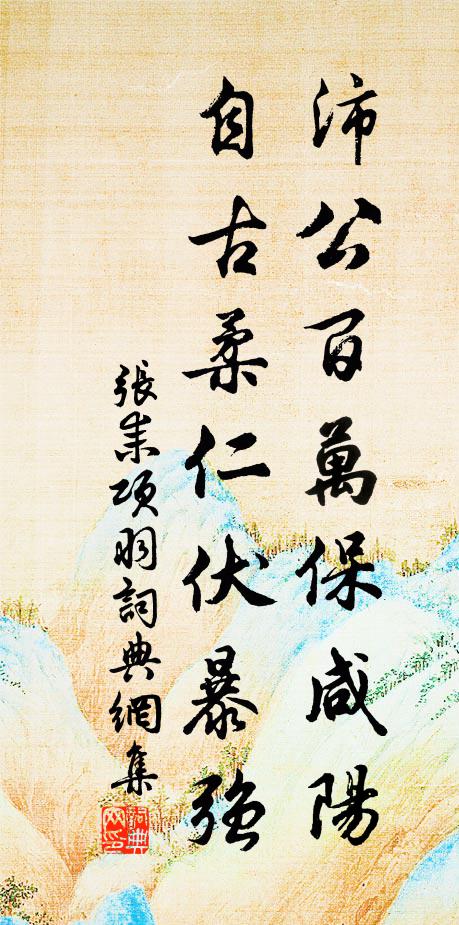 沛公百萬保咸陽
自古柔仁伏暴強
張耒項羽詞典網集
詞典網印